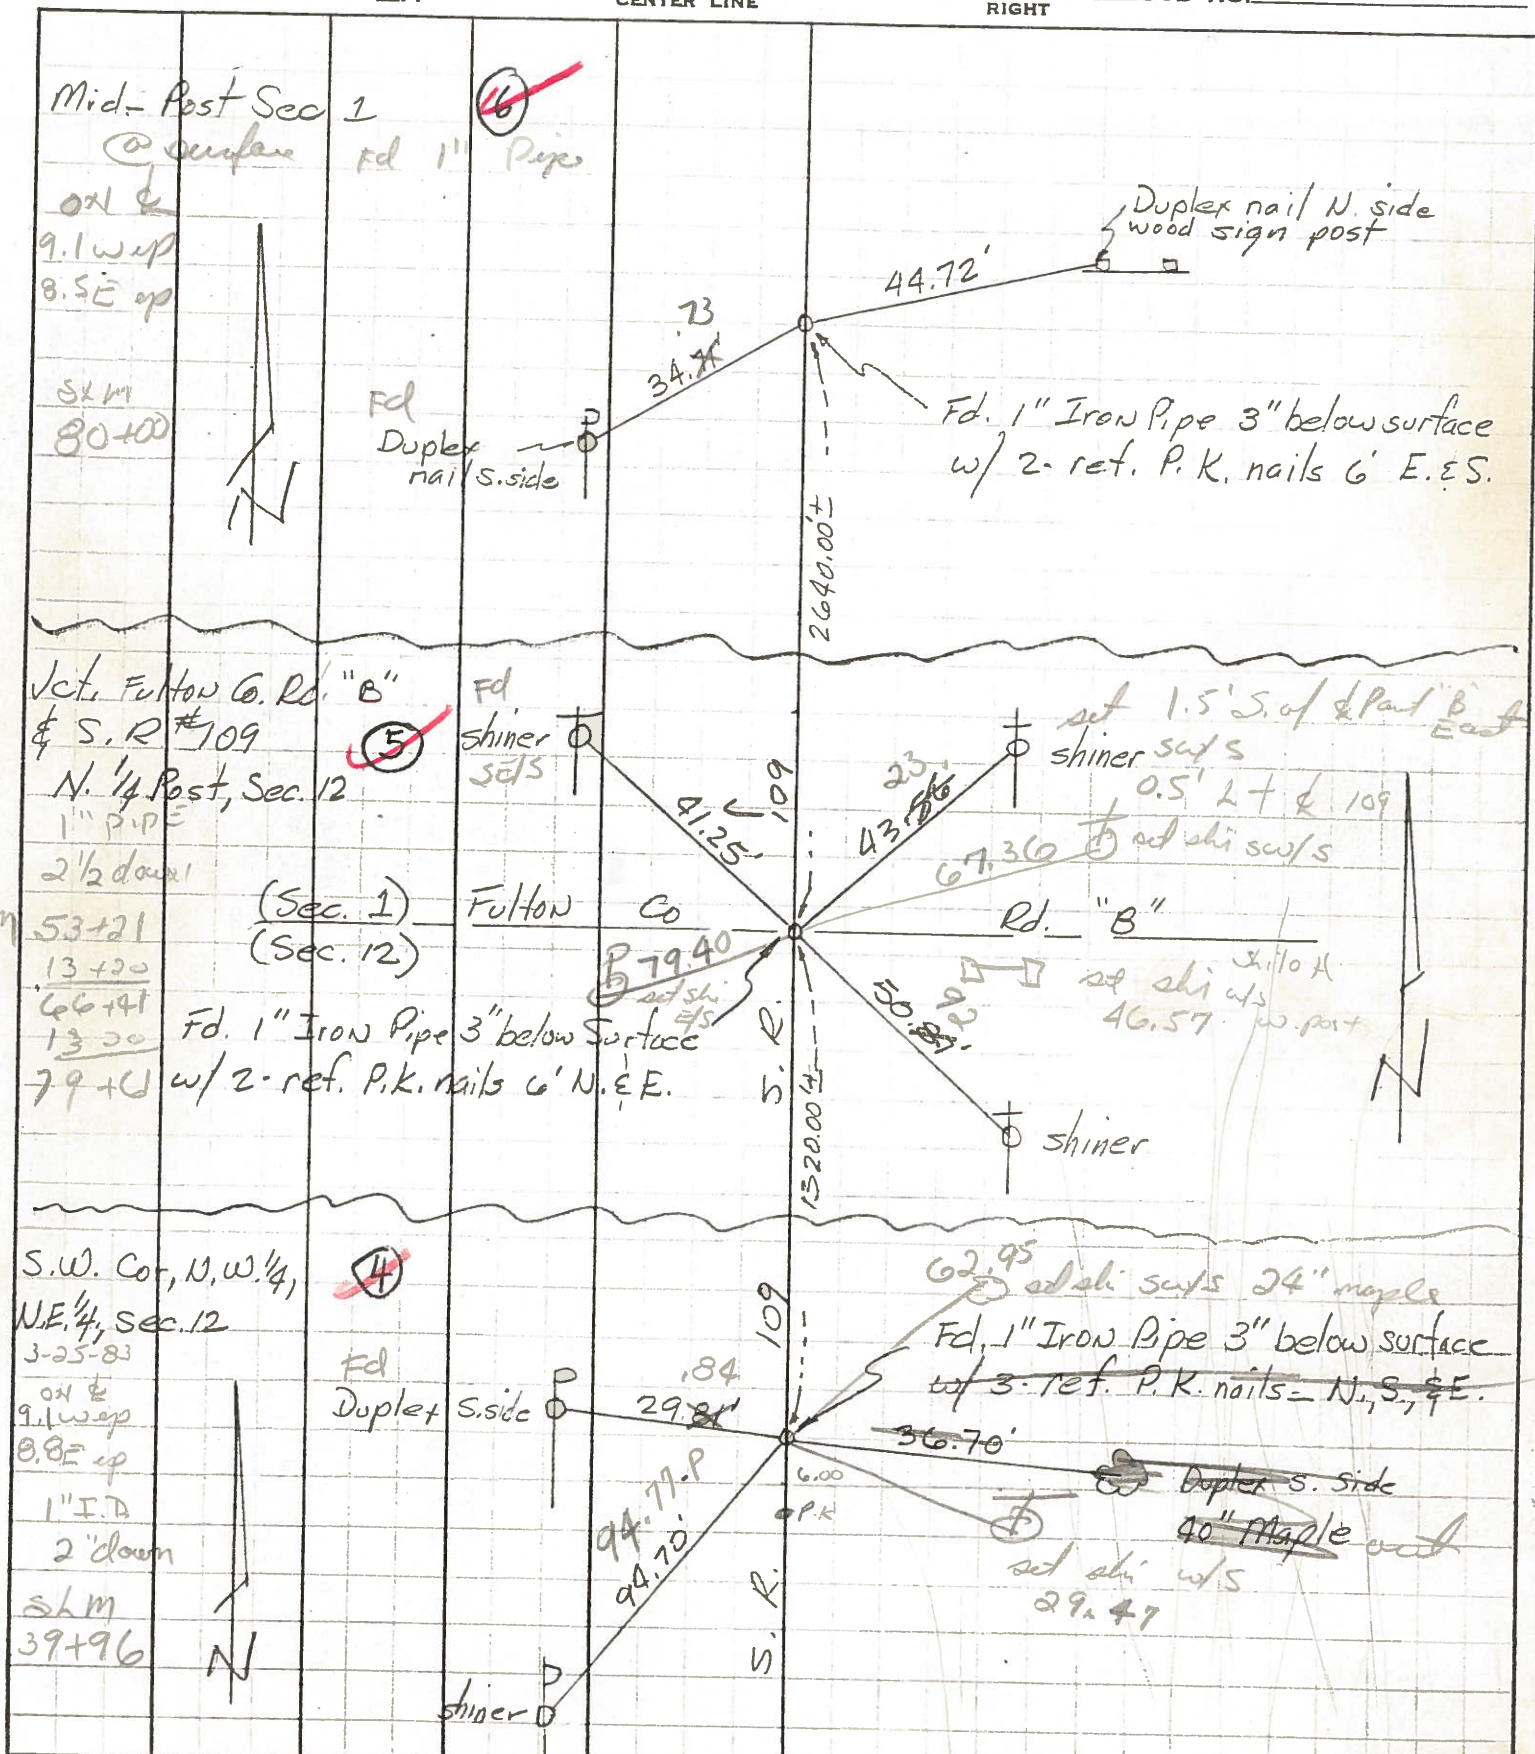 CENTER LINE
RIGHT
Mid-Post Sec 1
6
@ surface Fd 1" Pipe
on ℄
9.1 w ep
8.5 E ep
SLM
80+00
Duplex nail N. side
wood sign post
44.72'
.73
34.71'
Fd
Duplex
nail S. side
Fd. 1" Iron Pipe 3" below surface
w/ 2-ref. P.K. nails 6' E. & S.
2640.00'±
Jct. Fulton Co. Rd. "B"
& S.R. #109
5
N. 1/4 Post, Sec. 12
1" PIPE
2 1/2 down
53+21
13+20
66+41
13 20
79+61
Fd
shiner
SE/S
41.25'
109
23.
43.56
shiner sw/s
set 1.5' S. of ℄ Pavt "B"
East
0.5' Lt ℄ 109
67.36
set shi sw/s
(Sec. 1)
(Sec. 12)
Fulton Co Rd. "B"
79.40
set shi
E/S
set shi w/s
46.57 w. post
50.87
92
Fd. 1" Iron Pipe 3" below Surface
w/ 2-ref. P.K. nails 6' N. & E.
S. R.
1320.00'±
shiner
N
S.W. Cor, N.W. 1/4,
N.E. 1/4, Sec. 12
4
3-25-83
on ℄
9.1 w ep
8.8 E ep
1" I.D
2" down
SLM
39+96
109
62.95
set shi sw/s 24" maple
Fd. 1" Iron Pipe 3" below surface
w/ 3-ref. P.K. nails - N., S., & E.
Fd
Duplex S. side
.84
29.81'
36.70'
Duplex S. side
40" Maple out
6.00
P.K
set shi w/s
29.47
94.77-P
94.70'
S. R.
shiner
N